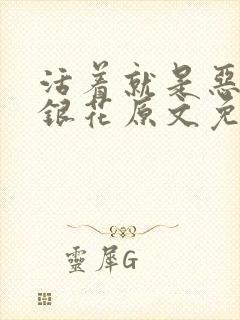 活着就是恶
銀花原文免
靈犀G